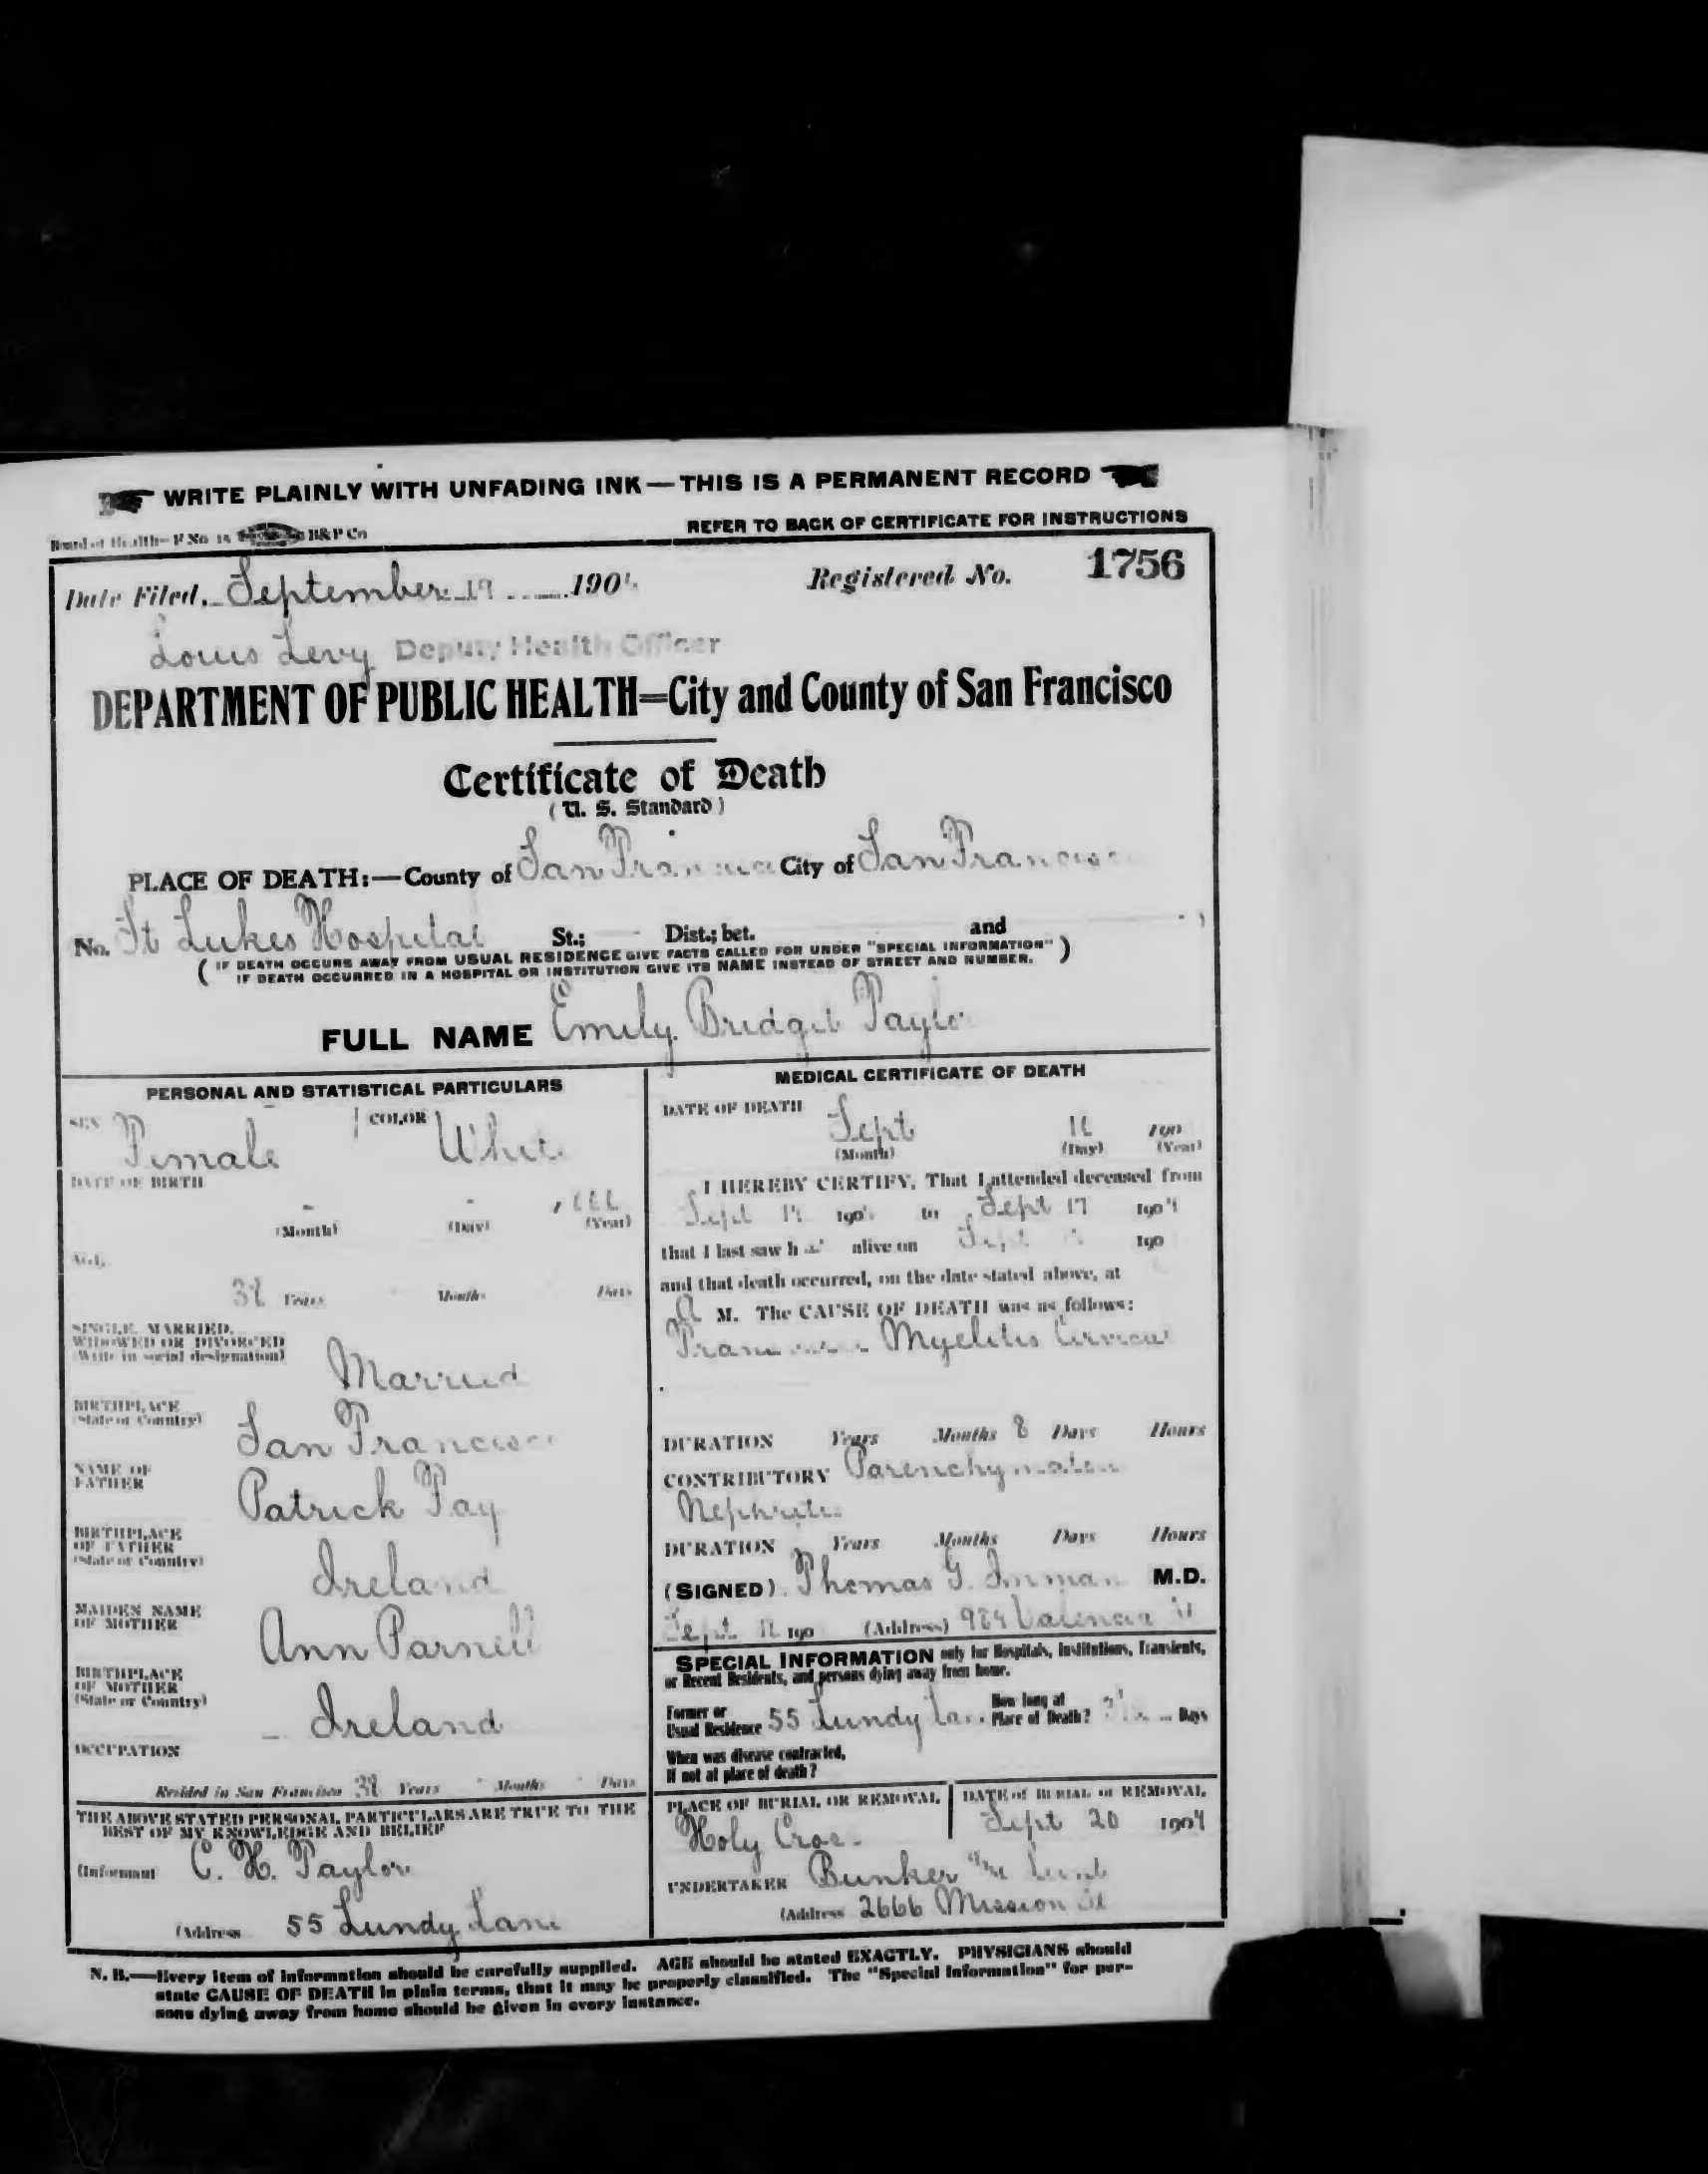 WRITE PLAINLY WITH UNFADING INK—THIS IS A PERMANENT RECORD
Board of Health—F. No. 18 B&P Co
REFER TO BACK OF CERTIFICATE FOR INSTRUCTIONS
Date Filed, September 19 190 Registered No. 1756
Louis Levy Deputy Health Officer
DEPARTMENT OF PUBLIC HEALTH=City and County of San Francisco
Certificate of Death
(U. S. Standard)
PLACE OF DEATH:—County of San Francisco City of San Francisco
No. St Lukes Hospital St.; Dist.; bet. and )
( IF DEATH OCCURS AWAY FROM USUAL RESIDENCE GIVE FACTS CALLED FOR UNDER "SPECIAL INFORMATION" )
IF DEATH OCCURRED IN A HOSPITAL OR INSTITUTION GIVE ITS NAME INSTEAD OF STREET AND NUMBER.
FULL NAME Emily Bridget Taylor
PERSONAL AND STATISTICAL PARTICULARS
SEX Female COLOR White
DATE OF BIRTH
(Month) (Day) (Year)
AGE
38 Years Months Days
SINGLE, MARRIED,
WIDOWED OR DIVORCED
(Write in social designation)
Married
BIRTHPLACE
(State or Country)
San Francisco
NAME OF
FATHER
Patrick Fay
BIRTHPLACE
OF FATHER
(State or Country)
Ireland
MAIDEN NAME
OF MOTHER
Ann Parnell
BIRTHPLACE
OF MOTHER
(State or Country)
Ireland
OCCUPATION
Resided in San Francisco 38 Years Months Days
THE ABOVE STATED PERSONAL PARTICULARS ARE TRUE TO THE
BEST OF MY KNOWLEDGE AND BELIEF
(Informant C. H. Taylor
(Address 55 Lundy Lane
MEDICAL CERTIFICATE OF DEATH
DATE OF DEATH
Sept 190
(Month) (Day) (Year)
I HEREBY CERTIFY, That I attended deceased from
Sept 190 to Sept 17 1904
that I last saw h alive on Sept 190
and that death occurred, on the date stated above, at
A M. The CAUSE OF DEATH was as follows:
Transverse Myelitis Cervical
DURATION Years Months 8 Days Hours
CONTRIBUTORY Parenchymatous
Nephritis
DURATION Years Months Days Hours
(SIGNED) Thomas G. Inman M.D.
Sept 190 (Address) 984 Valencia St
SPECIAL INFORMATION only for Hospitals, Institutions, Transients,
or Recent Residents, and persons dying away from home.
Former or
Usual Residence 55 Lundy Lane
How long at
Place of Death? Days
When was disease contracted,
If not at place of death?
PLACE OF BURIAL OR REMOVAL
Holy Cross
DATE of BURIAL or REMOVAL
Sept 20 1904
UNDERTAKER Bunker Lunt
(Address 2666 Mission St
N. B.—Every item of information should be carefully supplied. AGE should be stated EXACTLY. PHYSICIANS should
state CAUSE OF DEATH in plain terms, that it may be properly classified. The "Special Information" for per-
sons dying away from home should be given in every instance.